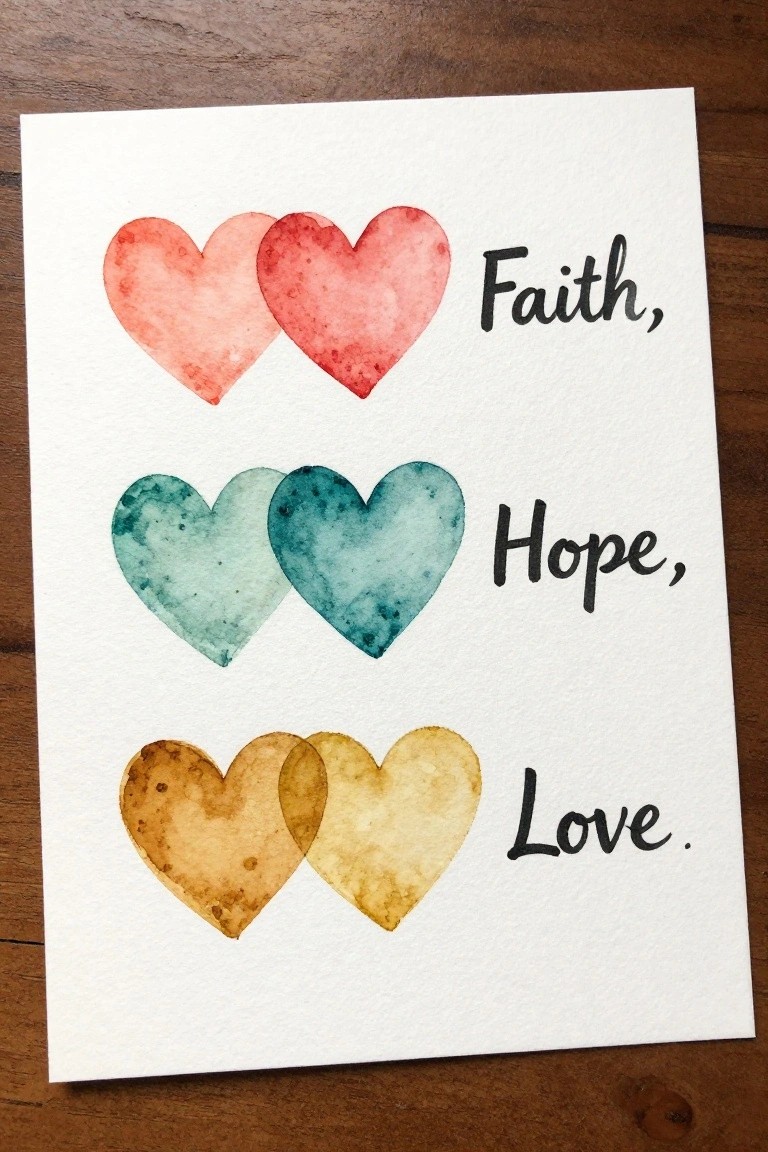 Faith,
Hope,
Love.